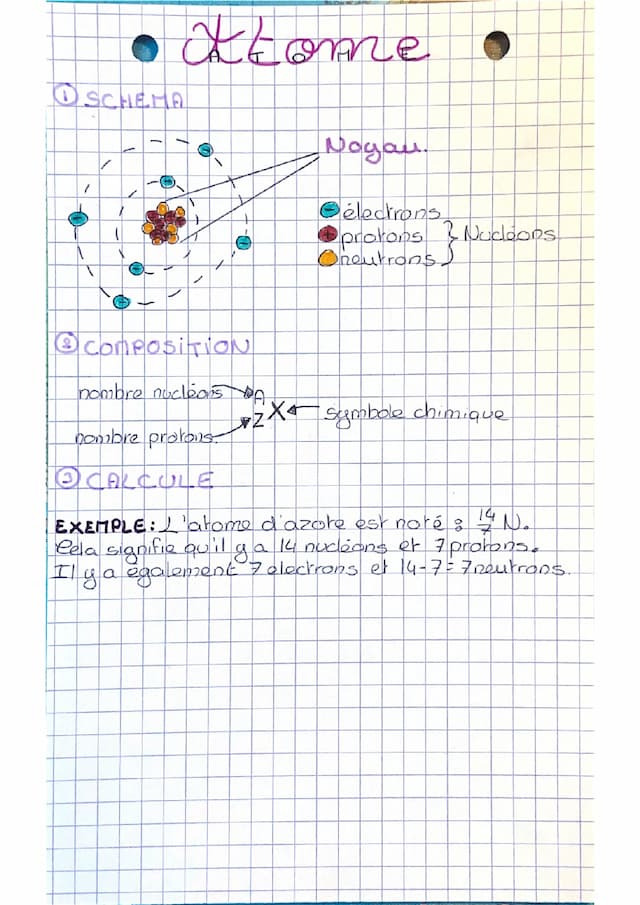 Atome
ATOME
① SCHEMA
Noyau.
électrons
protons } Nucléons
neutrons
② COMPOSITION
nombre nucléons A
Z X symbole chimique
nombre protons
③ CALCULE
EXEMPLE: L'atome d'azote est noté : ¹⁴₇ N.
Cela signifie qu'il y a 14 nucléons et 7 protons.
Il y a également 7 electrons et 14-7=7 neutrons.